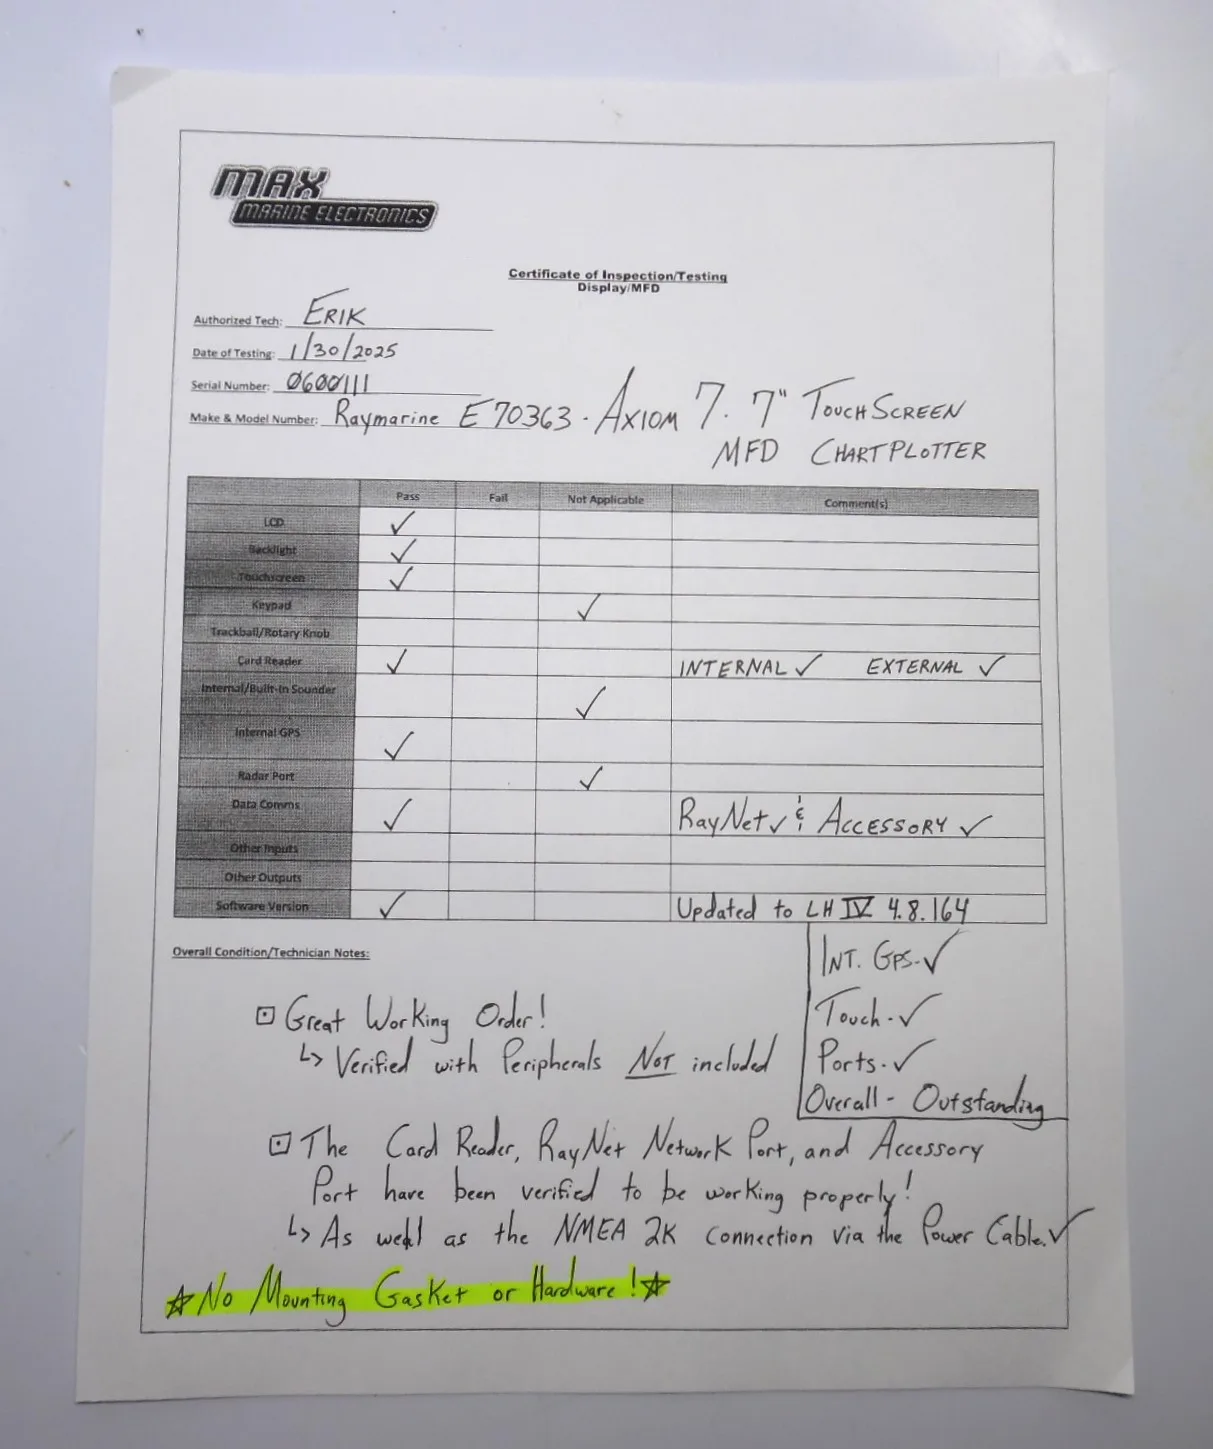 MAX
MARINE ELECTRONICS
Certificate of Inspection/Testing
Display/MFD
Authorized Tech: ERIK
Date of Testing: 1/30/2025
Serial Number: 0600111
Make & Model Number: Raymarine E70363 - AXIOM 7. 7" TOUCHSCREEN
MFD CHARTPLOTTER
Pass Fail Not Applicable Comment(s)
LCD ✓
Backlight ✓
Touchscreen ✓
Keypad ✓
Trackball/Rotary Knob
Card Reader ✓ INTERNAL ✓ EXTERNAL ✓
Internal/Built-In Sounder ✓
Internal GPS ✓
Radar Port ✓
Data Comms ✓ RayNet ✓ & ACCESSORY ✓
Other Inputs
Other Outputs
Software Version ✓ Updated to LH IV 4.8.164
Overall Condition/Technician Notes:
INT. GPS - ✓
Touch - ✓
Ports - ✓
Overall - Outstanding
Great Working Order!
↳ Verified with Peripherals NOT included
The Card Reader, RayNet Network Port, and Accessory
Port have been verified to be working properly!
↳ As well as the NMEA 2K connection via the Power Cable. ✓
☆ No Mounting Gasket or Hardware! ☆